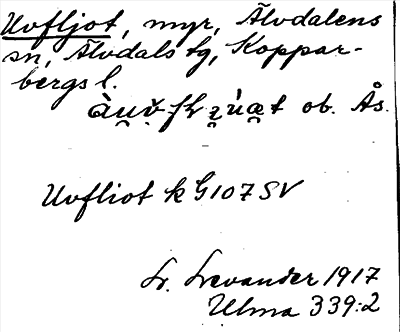 Uvfljot, myr, Älvdalens
sn, Älvdals tg, Koppar-
bergs l.
ob. Ås.
Uvfliot k G107 SV
Lr. Levander 1917
Ulma 339:2